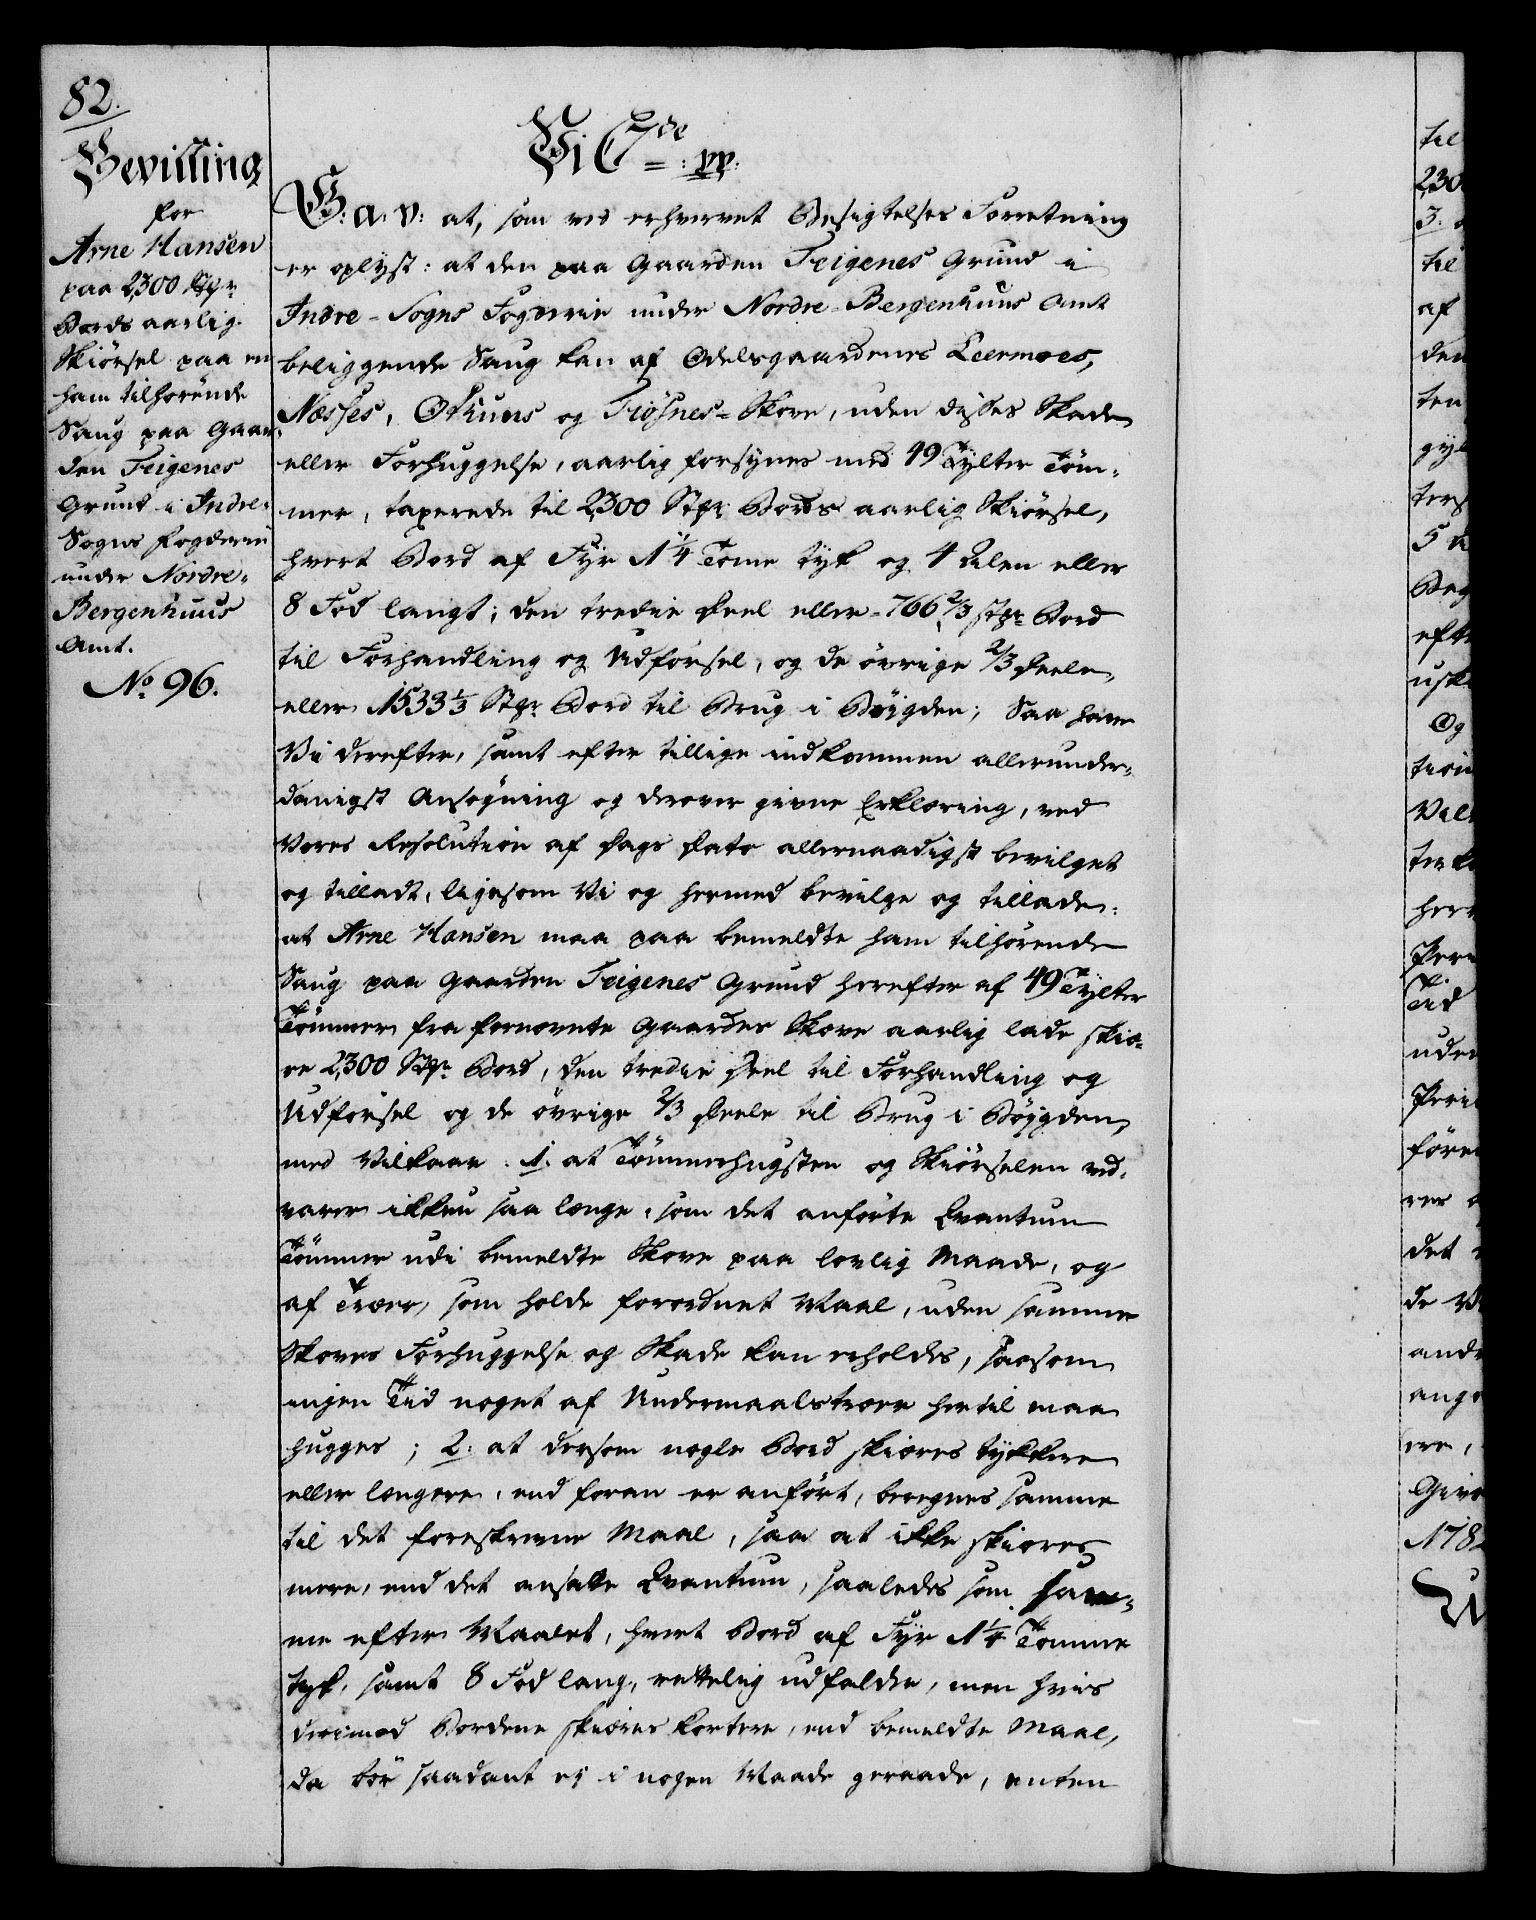 82.
Bevilling
for
Arne Hansen
paa 2300 Stkr
Bords aarlig
Skiörsel paa en
ham tilhørende
Saug paa Gaar-
den Teigenes
Grund i Indre-
Sogns Fogderie
under Nordre-
Bergenhuus
Amt.
No. 96.
Vi C 7de =: pp:
G: a: v: at, som ved erhvervet Besigtelses Forretning
er oplyst: at den paa Gaarden Teigenes Grund i
Indre-Sogns Fogderie under Nordre-Bergenhuus Amt
beliggende Saug kan af Odelsgaardenes Leermoes,
Næsses, Ottuns og Fiösnes-Skove, uden disses Skade
eller Forhuggelse, aarlig forsynes med 49 Tylter Töm-
mer, taxerede til 2300 Stkr Bords aarlig Skiörsel,
hvert Bord af Fyr 1 1/4 Tome tyk og 4 Alen eller
8 Fod langt; den tredie Deel eller 766 2/3 Stkr Bord
til Forhandling og Udförsel, og de övrige 2/3 Deele
eller 1533 1/3 Stkr Bord til Brug i Böygden; Saa have
Vi derefter, samt efter tillige indkommen allerunder-
danigst Ansøgning og derover givne Erklæring, ved
Vores Resolution af Dags Dato allernaadigst bevilget
og tilladt, ligesom Vi og hermed bevilge og tillade:
at Arne Hansen maa paa bemeldte ham tilhørende
Saug paa Gaarden Teigenes Grund herefter af 49 Tylter
Tömmer fra fornevnte Gaardes Skove aarlig lade skiæ-
re 2300 Stkr Bord, den tredie Deel til Forhandling og
Udförsel og de övrige 2/3 Deele til Brug i Böygden,
med Vilkaar 1. at Tömmerhugsten og Skiörselen ved-
varer ikkun saa længe, som det anförte Qvantum
Tömmer udi bemeldte Skove paa lovlig Maade, og
af Træer, som holde forordnet Maal, uden samme
Skoves Forhuggelse og Skade kan erholdes, saasom
ingen Tid noget af Undermaalstræer hertil maa
hugges; 2. at dersom nogle Bord skiæres tykkere
eller længere, end foran er anfört, beregnes samme
til det foreskrevne Maal, saa at ikke skiæres
mere, end det ansatte Qvantum, saaledes som sam-
me efter Maalet, hvert Bord af Fyr 1 1/4 Tomme
tyk, samt 8 Fod lang, rettelig udfalder, men hvis
derimod Bordene skiæres kortere, end bemeldte Maal,
da bör saadant ej i nogen Maade geraade, enten
til
230
3.
til
af
den
ten
gyl
ters
5
Beg
efte
uske
Og
tion
Vil
ter
her
Per
Tid
uden
Peri
fören
res
det
de
and
ang
ere,
Giv
178